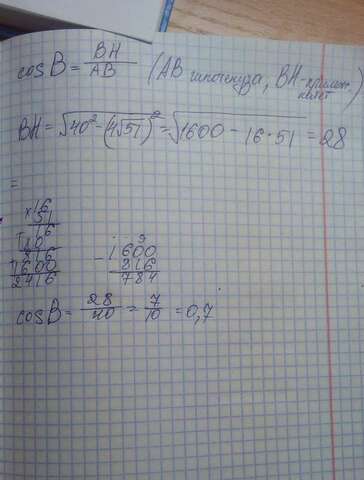 cos B = BH/AB (AB гипотенуза, BH - прилеж. катет)
BH = √40² - (4√51)² = √1600 - 16·51 = 28
=
×16
51
16
80
816
1600
2416
1600
- 816
784
cos B = 28/40 = 7/10 = 0,7